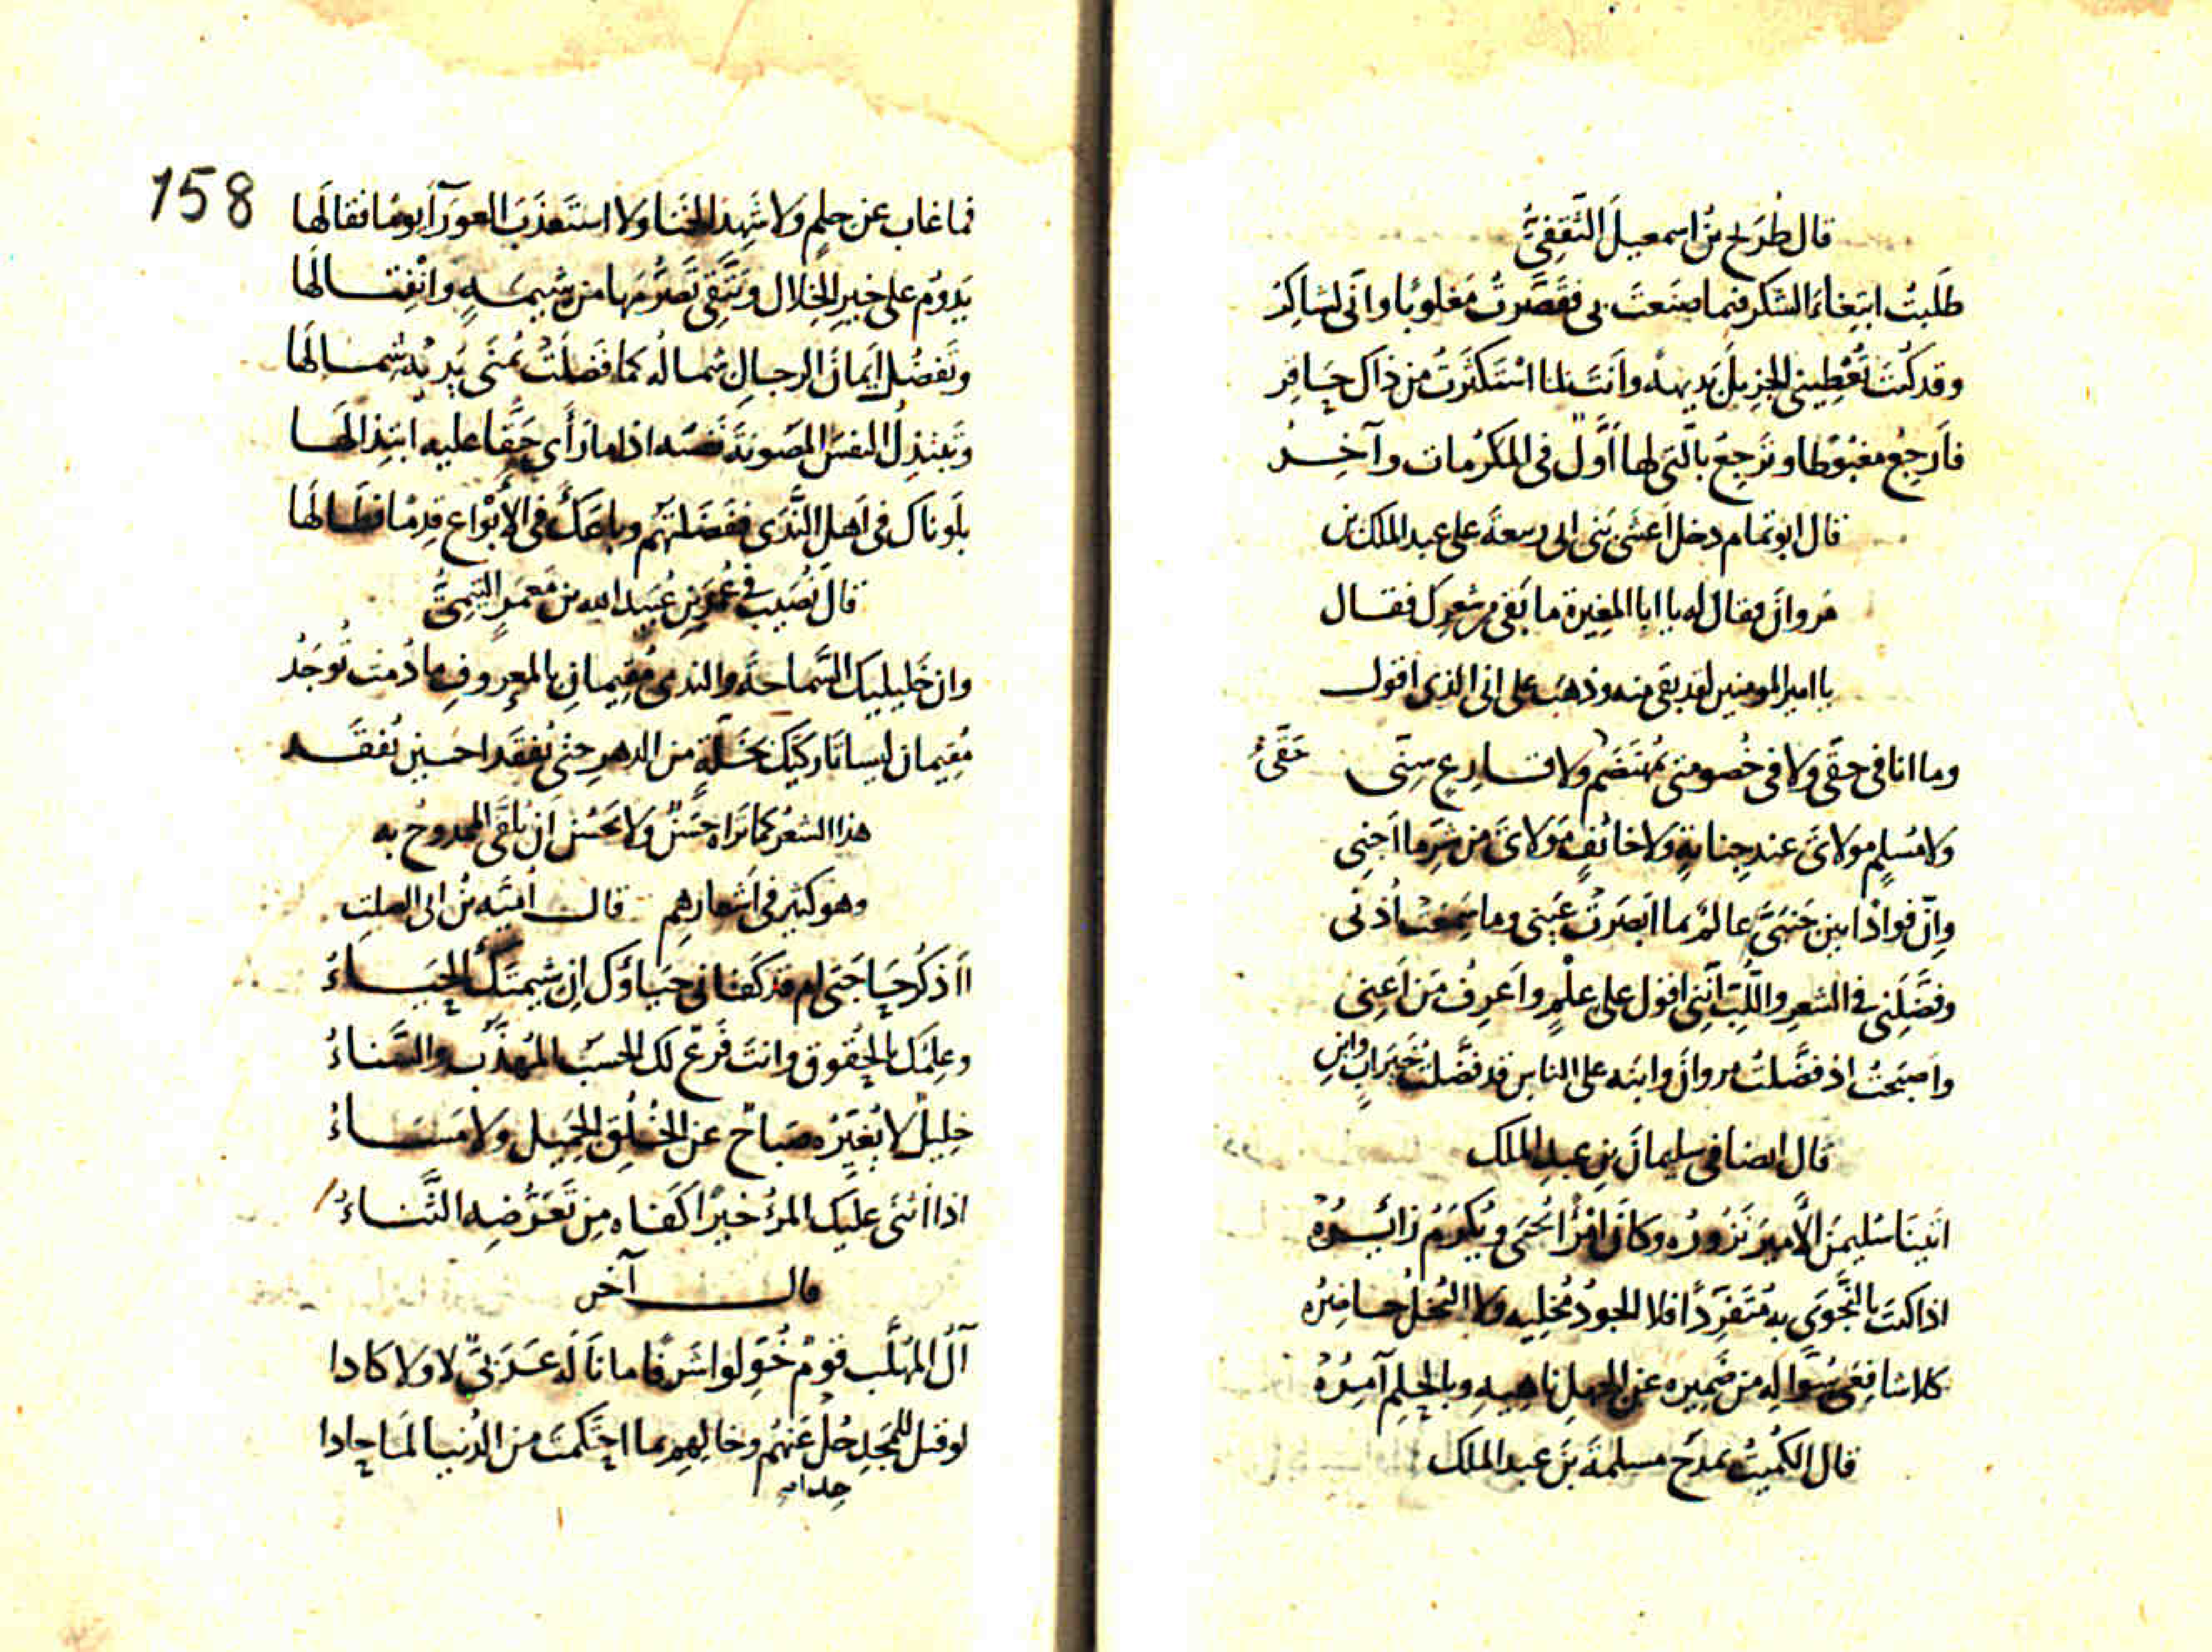 قال طُرَيح بنُ اسمعيلَ الثَّقَفِيُّ
طَلَبتُ ابتِغاءَ الشكر فيما صنَعتَ بى فقَصَّرتُ مَغلوبًا وانّى لشاكِرُ
وقد كنتَ تُعْطِينى الجزيلَ بَديهةً وانتَ لما اسْتَكثَرتُ من ذاك حَاقِرُ
فاَرجِعُ مغبُوطًا وتَرجِعُ بالَّتى لها اَوَّلٌ فى المَكرُمات وآخِرُ
قال ابو تمام دخل اَعشَى بَنى ابى ربيعة على عبد الملك بن
مَروانَ فقال له يا ابا المغيرة ما بَقى من شِعرِك فقال
يا امير المومنين لقد بقى منه وذهَب على انى الذى اقول
وما انا فى حقّى ولا فى خُصومتى بمُهتَضَمٍ ولا قارِعٍ سِنّى
حَقّىُ
ولا مُسلِمٍ مولاىَ عند جِنايةٍ ولا خائفٍ مَولاىَ من شَرِّ ما اَجنِى
وانّ فوادًا بين جَنبَىَّ عالمٌ بما ابصَرتْ عَينى وما سمِعَتْ اُذنى
وفضَّلَنى فى الشعرِ واللُّبِّ اَنَّنِى اقول على عِلْمٍ واَعرِفُ مَن اَعنِى
واَصبَحتُ اذ فضَّلتُ مروانَ وابنَه على الناس قد فضَّلتُ خَيرَ اَبٍ وابنِ
قال ايضا فى سليمانَ بنِ عبدِ الملك
اتَينَا سُليمنَ الاَميرَ نَزُورُه وكانَ امْرَأً يُحبَى ويُكرَمُ زائِرُهْ
اذا كنتَ بالنَّجْوَى به مُتَفَرِّدًا فلا الجودُ مُخلِيهِ ولا البُخلُ حاضِرُه
كلا شافِعَى سُوَّالِه من ضَمِيرِه عن الجهلِ ناهِيهِ وبالحِلمِ آمِرُهْ
قال الكُميتُ يمدَح مسلمةَ بنَ عبد الملك
158
فما غاب عن حِلمٍ ولا شَهِدَ الخَنا ولا استَعذَبَ العَورآءَ يومًا فقالَها
يَدومُ على خيرِ الخِلال ويَتَّقى تَصَرُّمَها من شيمةٍ وانْفِتالَها
وتَفضُلُ اَيمانَ الرجالِ شِمالُه كما فَضَلَتْ يُمنَى يَدَيْه شِمالَها
ويَبتذِلُ النفسَ المصونةَ نفسَه اذا ما رأَى حَقًّا عليه ابتِذالَها
بلَوناك فى اَهلِ النَّدَى ففَضَلتَهُم وباعَكَ فى الأَبْواعِ قِدمًا فطالَها
قال نُصَيب فى عُمَرَ بنِ عُبيد الله بن مَعمَرٍ التَّيمِىِّ
وان خَليليك السَّماحةَ والندى مُقيمانِ بالمعروفِ ما دُمتَ تُوجَدُ
مُقيمان ليسا تاركَيك بخَلّةٍ من الدهرِ حتى يُفقَدا حين تُفقَد
هذا الشعرُ كما تَراه حَسَنٌ ولا يَحسُن اَن يُلقَى الممدوحُ به
وهو كثير فى اَشعارِهم قال اُميّه بنُ ابى الصلت
اَاَذكُر حاجَتى ام قد كَفانى حَياؤك ان شيمتَك الحَياءُ
وعِلمُك بالحُقوق وانتَ فَرعٌ لك الحسَبُ المُهذَّب والسَّناءُ
خليلٌ لا يُغيّرُه صَباحٌ عن الخُلُقِ الجَميل ولا مَساءُ
اذا اَثنى عليك المرءُ خيرًا كَفاه من تَعَرُّضِه الثَّناءُ
قال آخر
آلُ المُهَلَّب قومٌ خُوِّلوا شَرفًا ما نالَه عَرَبىٌّ لا ولا كادا
لو قيل للمَجدِ حُلْ عَنهُم وخالِهِم بما احتكمتَ من الدُنيا لَما حادا